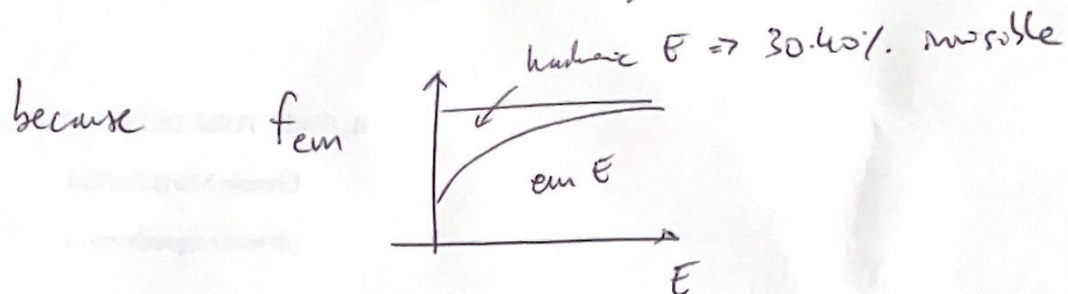 hadronic E => 30-40%. invisible
because f_em
em E
E